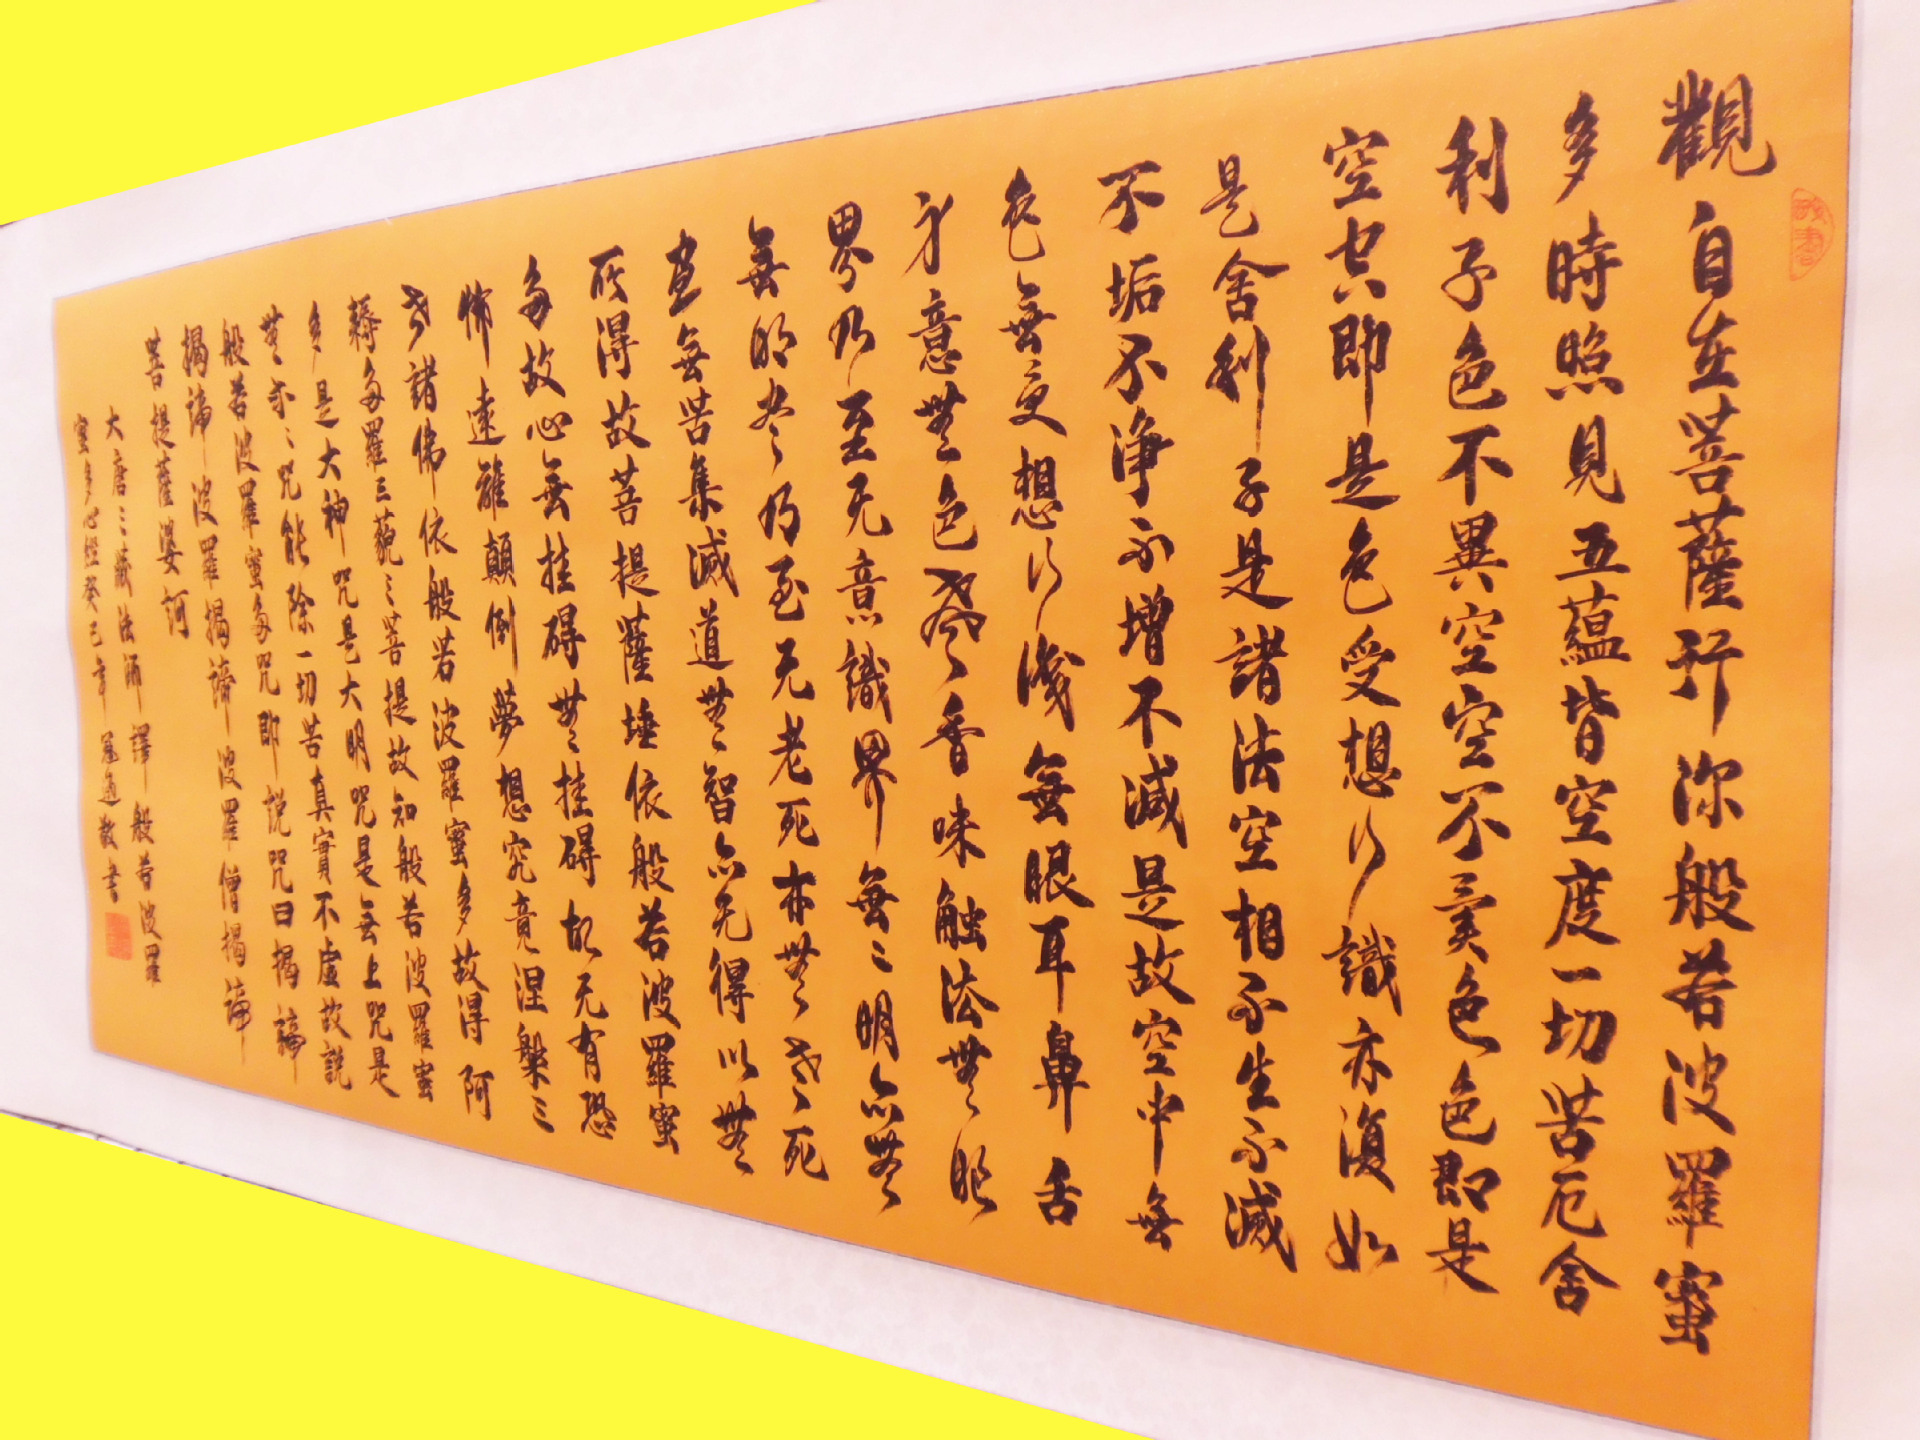 觀自在菩薩行深般若波羅蜜
多時照見五蘊皆空度一切苦厄舍
利子色不異空空不異色色即是
空空即是色受想行識亦復如
是舍利子是諸法空相不生不滅
不垢不淨不增不減是故空中無
色無受想行識無眼耳鼻舌
身意無色聲香味触法無眼
界乃至无意識界無〻明亦無
無明尽乃至无老死亦無老死
盡無苦集滅道無智亦无得以無
所得故菩提薩埵依般若波羅蜜
多故心無挂碍無挂碍故无有恐
怖遠離顛倒夢想究竟涅槃三
世諸佛依般若波羅蜜多故得阿
耨多羅三藐三菩提故知般若波羅蜜
多是大神咒是大明咒是無上咒是
無等〻咒能除一切苦真實不虛故説
般若波羅蜜多咒即説咒曰揭諦
揭諦波羅揭諦波羅僧揭諦
菩提薩婆訶
大唐三藏法師譯般若波羅
蜜多心經癸巳年敬書